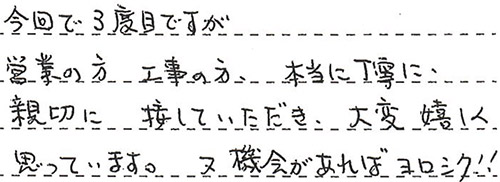 今回で3度目ですが
営業の方 工事の方、本当に丁寧に、
親切に 接していただき、大変 嬉しく
思っています。 又 機会があれば ヨロシク!!